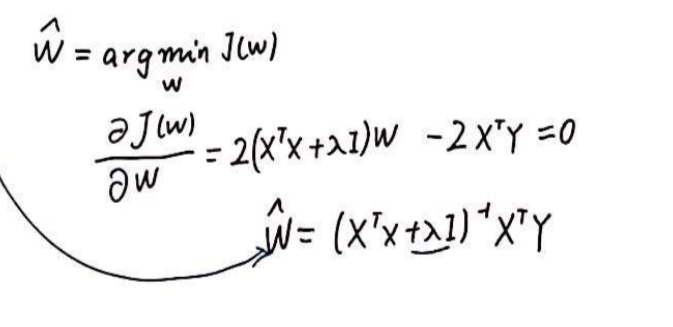 Ŵ = argmin J(w)
w
∂J(w)/∂W = 2(XᵀX+λI)W - 2XᵀY = 0
Ŵ = (XᵀX+λI)⁻¹XᵀY